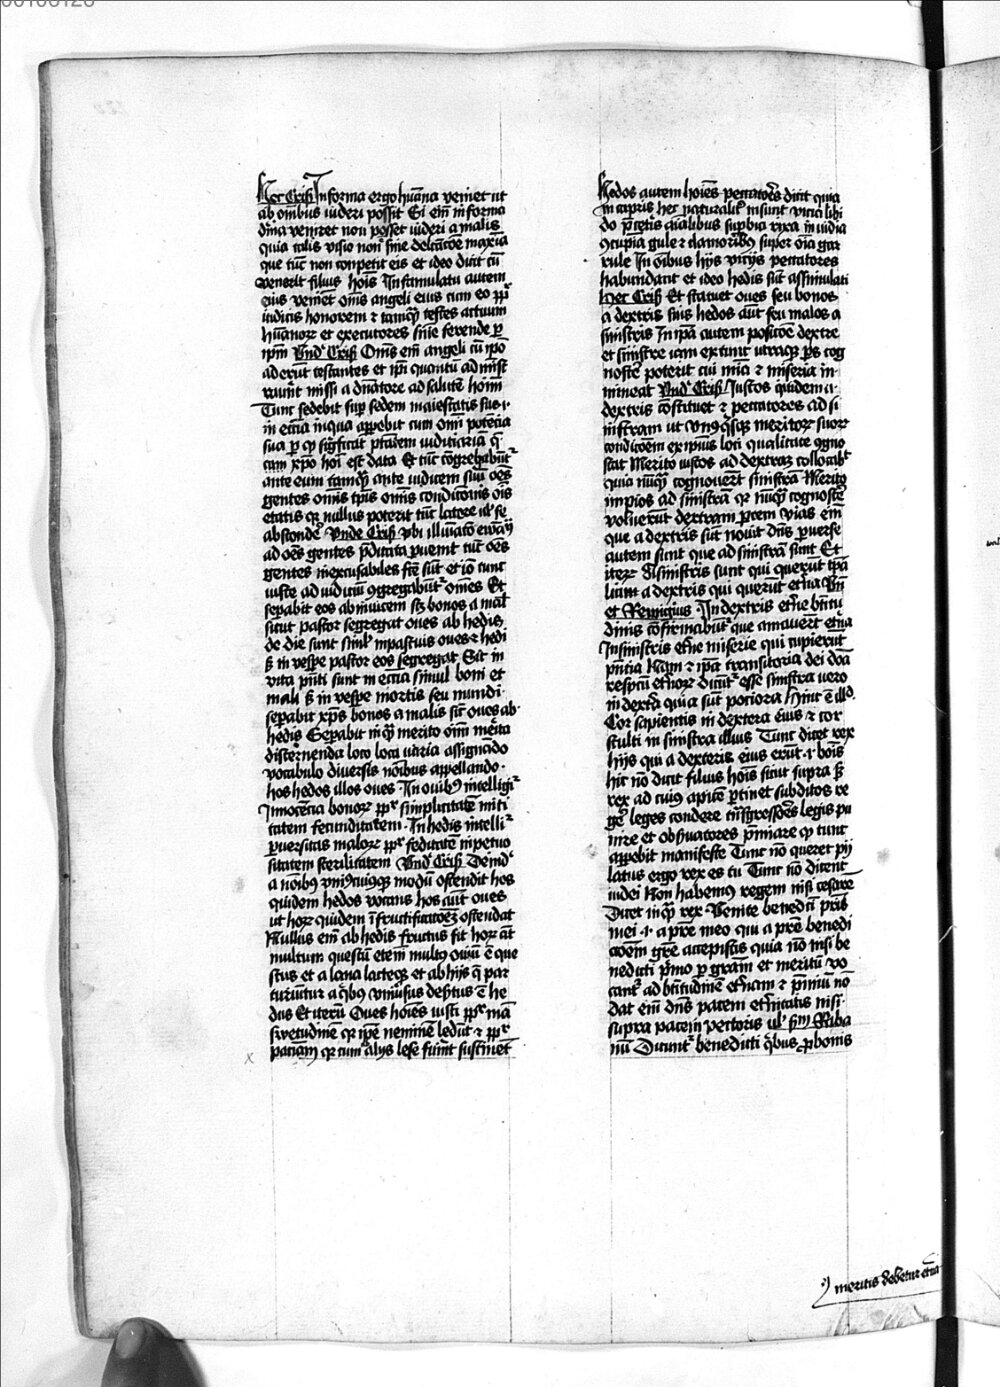 Hec Crisꝰ In forma ergo huāna veniet ut
ab omībus videri possit Si em̄ in forma
dīna veniret non posset videri a malis
quia talis visio non sine delectacōe maxīa
que tūc non conpetit eis et ideo dicit cū
venerit filius hoīs In famulatu autem
eius venient om̄s angeli eius cum eo ꝓpt̄
iudicis honorem ⁊ tamq̄ testes actuum
huānoꝝ et executores sn̄ie ferende ꝑ
ipm̄ Vnd̾ Crisꝰ Om̄s em̄ angeli cū ipō
aderūt testantes et ipī quantū admīst
missi a dnātore ad salutē hoīm
Tunc sedebit sup̄ sedem maiestatis sue .i.
in ecc̄ia in qua apꝑebit cum om̄i potēcia
sua ꝑ qꝫ sig̾ficat ptātem iudiciariā q̄
cam xp̄o hoī est data Et tūc cōgregabūt̾
ante eum tamq̄ ante iudicem suū oēs
gentes om̄is tp̄is om̄is condicōnis oīs
etatis qꝛ nullus poterit tūc latere ul̾ se
abscondē̾ Vnde Crisꝰ ubi illuīato
ad oēs gentes p̄dicata ꝑuen̄it tūc oēs
gentes inexcusabiles fc̄e sūt et iō tunc
iuste ad iudiciū ꝯgregabūt̾ om̄es Et
sepabit eos abinuicem sꝫ bonos a mal̾
sicut pastor segregat oues ab hedis
de die sunt simul̾ in pascuis oues ⁊ hedi
sꝫ in vesꝑe pastor eos segregat Sic in
vita pn̄ti sunt in ecc̄ia simul boni et
mali sꝫ in vesꝑe mortis seu mundi
sepabit xp̄s bonos a malis sic̄ oues ab
hedis Sepabit inq̄ merito om̄i mērita
discernenda loco loca varia assignādo
vocabulo diuersis nōibus appellando
hos hedos illos oues In ouibꝰ intelligi̾
Innocēcia bonoꝝ ꝓpt̾ simplicitatē miti
tatem fecunditatem In hedis intelli̾
ꝑuersitas maloꝝ ꝓpt̾ feditatē inpetuo
sitatem sterilitatem Vnd̾ Crisꝰ Deind̾
a nōibꝰ vniꝰcuiusqꝫ modū ostendit hos
quidem hedos vocans hos aūt oues
ut hoꝝ quidem ī fructificacōeꝫ ostendat
Nullus em̄ ab hedis fructus fit hoꝝ aūt
multum questū etem̄ multꝰ ouiū ē que
stus et a lana lacteqꝫ et ab hijs q̄ par
turiuntur a q̄bꝰ vniu̾sus deſtitus ē he
dus Et iterū Oues hoīes iusti ꝓpt̾ mā
swetudinē qꝛ ipē neminē ledūt ⁊ ꝓpt̾
paciām qꝛ cum ab alijs lese fuīnt sustinēt
Hedos autem hoīes peccatōes dicit quia
in capris hec naturalit̾ insunt vicia libi
do p̄ cet̾is aīalibus suꝑbia rixa inuidia
ꝯcupīa gule ⁊ clamoribꝰ super oīa gar
rule In oībus hijs vicijs peccatores
habundant et ideo hedis sūt assimilati
Hec Crisꝰ Et statuet oues seu bonos
a dextris suis hedos aūt seu malos a
sinistris In ipā autem posicōe dextre
et sinistre iam exeunt utraqꝫ ꝑs cog
noscē poterit cui mīa ⁊ miseria in
mineat Vnd̾ Crisꝰ Iustos quidem a
dextris cōstituet ⁊ peccatores ad si
nistram ut vnꝰqꝫsqꝫ meritoꝝ suoꝝ
condicōem ex ipsius loci qualitate ꝯgno
scat Merito iustos ad dextraꝫ collocabt̾
quia nūq̄ cognouerūt sinistrā Merito
impios ad sinistrā qꝛ nūq̄ cognoscē
voluerūt dextram ꝑtem vias em̄
que a dextris sūt nouit dn̄s ꝑuerse
autem sunt que ad sinistrā sunt Et
iteꝝ A sinistris sunt qui querūt tꝑa
lium a dextris qui querūt et̾na
et Remigius In dextris et̾ne btītu
dinis cōfirmabūt̾ que amauerūt et̾na
In sinistris et̾ne miserie qui cupierūt
pn̄tia Nam ⁊ ipā transitoria dei dōa
respcū et̾noꝝ dicūt̾ esse sinistra vero
in dext̾a quia sūt pociora Hinc ē ill̾d
Cor sapientis in dextera eius ⁊ cor
stulti in sinistra illius Tunc dicet rex
hijs qui a dexteris eius erūt .i. boīs
hic nō dicit filius hoīs sicut supra sꝫ
rex ad cuiꝰ apicē ꝑtinet subditos re
gē leges condere trāsgressōes legis pu
nire et obs̾uatores p̄miare qꝫ tunc
apꝑebit manifeste Tunc nō queret pi
latus ergo rex es tu Tunc nō dicent
iudei Non habemꝰ regem nisi cesare
Dicet inq̄ rex Venite benedc̄i pr̄is
mei .i. a pr̄e meo qui a pr̄e benedi
ccōem gr̄e accepistis quia nō nisi be
nedicti p̄mo ꝑ grām et meritū vo
cant̾ ad btītudinē et̾nam ⁊ p̄miū nō
dat em̄ dn̄s pacem et̾nitatis nisi
supra pacem pectoris ul̾ scd̄m Raba
nū Dicunt̾ benedicti q̄bus ꝓ bonis
meritis debetur et̾na